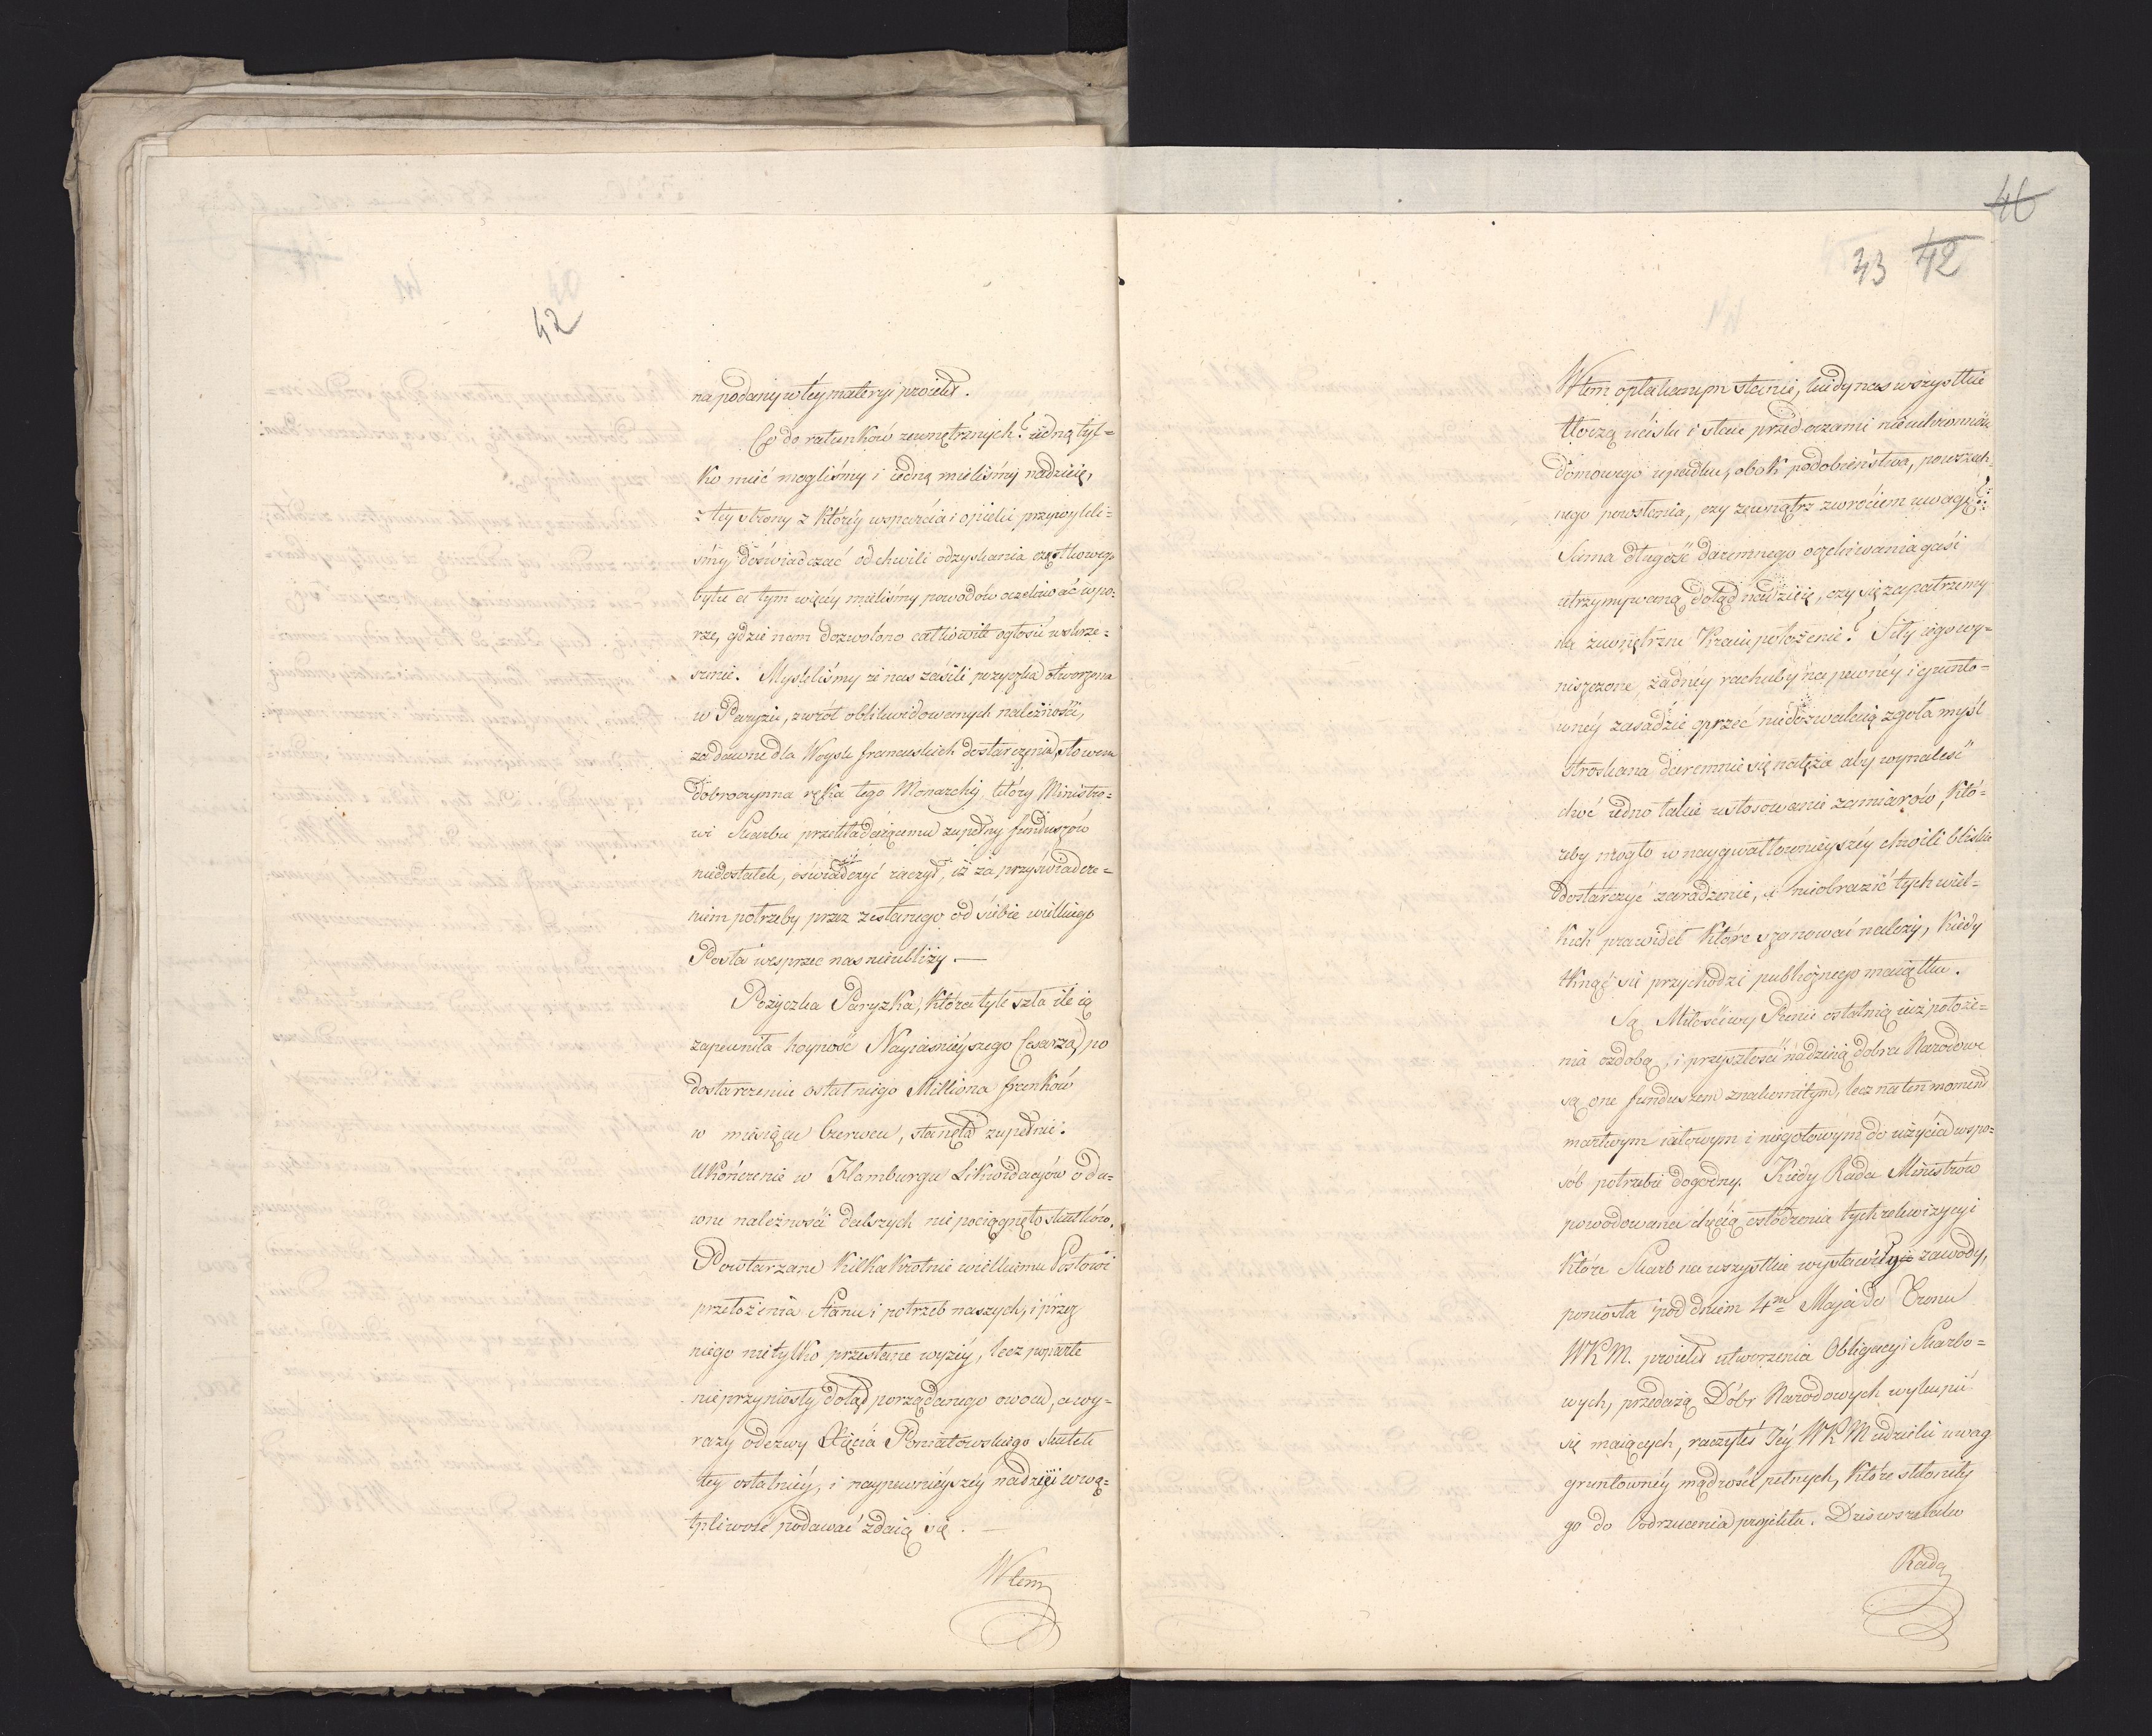 42
na podany w tey materyi proiekt.
Co do ratunków zewnętrznych? iedną tyl=
ko mieć mogliśmy i iedną mieliśmy nadzieię,
z tey strony z któréy wsparcia i opieki przywykli=
śmy doświadczać od chwili odzyskania cząstkowego
bytu a tym więcéy mieliśmy powodów oczekiwać w po=
rze, gdzie nam dozwolono całkowite ogłosić wskrze=
szenie. Myśleliśmy że nas zasili pożyczka otworzona
w Paryżu, zwrót oblikwidowanych należności,
za dawne dla Woysk francuskich dostarczenia, słowem
dobroczynna ręka tego Monarchy, który Ministro=
wi Skarbu przekładaiącemu zupełny funduszów
niedostatek, oświadczyć raczył, iż za przyświadcze=
niem potrzeby przez zesłanego od siebie wielkiego
Posła wesprzeć nas nieubliży. —
Pożyczka Paryzka, która tyle szła ile ią
zapewniła hoyność Nayiaśnieyszego Cesarza, po
dostarczeniu ostatniego Milliona franków
w miesiącu Czerwcu, stanęła zupełnie.
Ukończenie w Hamburgu Likwidacyów o da=
wne należności dalszych nie pociągnęło skutków.
Powtarzane kilkakrotnie wielkiemu Posłowi
przełożenia Stanu i potrzeb naszych, i przez
niego nietylko przesłane wyżéy, lecz poparte
nieprzyniosły dotąd porządanego owocu, a wy=
razy odezwy Xięcia Poniatowskiego skutek
tey ostatniéy, i naypewnieyszéy nadzieii w wą=
tpliwość podawać zdaią się. —
Wtem
46
43 42
Wtem opłakanym stanie, kiedy nas wszystkie
tłoczą uciski i staie przed oczami nieuchronność
domowego upadku, obok podobieństwa, powszech=
nego powstania, czy zewnątrz zwróciem uwagę?
Sama długość daremnego oczekiwania gasi
utrzymywaną dotąd nadzieię, czy się zapatrzemy
na zewnętrzne Kraiu położenie? Siły iego wy=
niszczone żadnéy rachuby na pewnéy i grunto=
wnéy zasadzie oprzeć niedozwalaią zgoła myśl
stroskana daremnie się natęża aby wynaleść
choć iedno takie ustosowanie zamiarów, któ=
reby mogło w naygwałtownieyszéy chwili bliskie
dostarczyć zaradzenie, a nieobrazić tych wiel=
kich prawideł które szanować należy, kiedy
tknąć się przychodzi publicznego maiątku.
Są Miłościwy Panie ostatnią iuż położe=
nia ozdobą, i przyszłości nadzieią dobra Narodowe
są one funduszem znakomitym, lecz na ten moment
martwym iałowym i niegotowym do użycia w spo=
sób potrzebie dogodny. Kiedy Rada Ministrów
powodowana chęcią osłodzenia tych rekwizycyi
które Skarb na wszystkie wystawiły zawody,
poniosła pod dniem 4m Maja do Tronu
WKM. proiekt utworzenia Obligacyi Skarbo=
wych, przedażą Dóbr Narodowych wykupić
się maiących, raczyłeś Jéy WKM udzielić uwag
gruntownéy mądrości pełnych, które skłoniły
go do odrzucenia projektu. Dziś wszelako
Rada